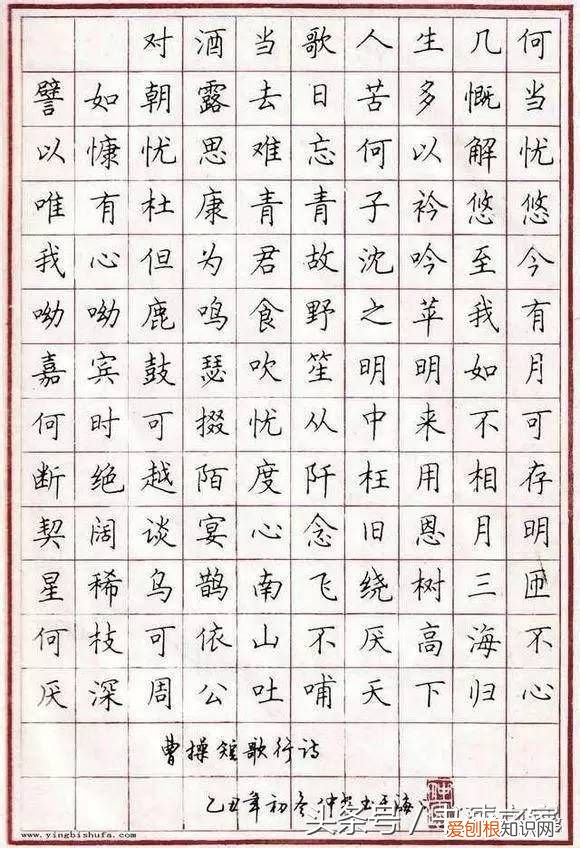 对酒当歌人生几何
譬如朝露去日苦多慨当
以慷忧思难忘何以解忧
唯有杜康青青子衿悠悠
我心但为君故沈吟至今
呦呦鹿鸣食野之苹我有
嘉宾鼓瑟吹笙明明如月
何时可掇忧从中来不可
断绝越陌度阡枉用相存
契阔谈宴心念旧恩月明
星稀乌鹊南飞绕树三匝
何枝可依山不厌高海不
厌深周公吐哺天下归心
曹操短歌行诗
乙丑年初冬仲 书于海
www.yingbishufa.com
头条号
爱刨根知识网